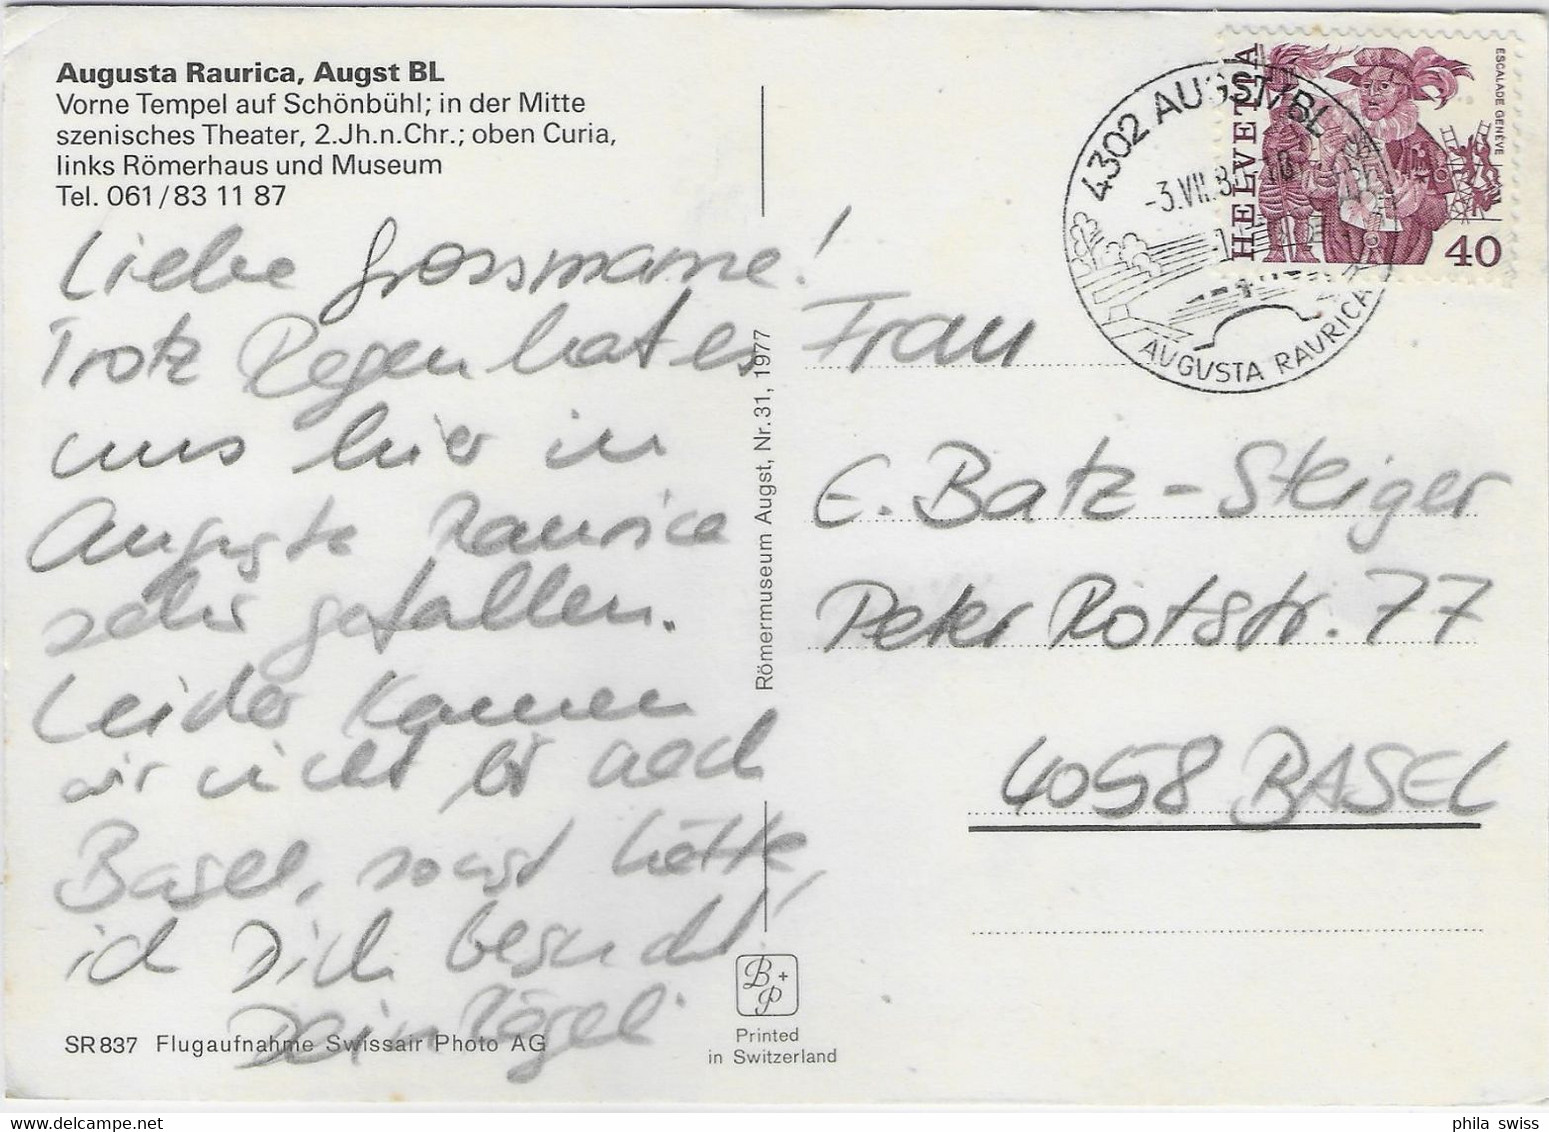 Augusta Raurica, Augst BL
Vorne Tempel auf Schönbühl; in der Mitte
szenisches Theater, 2.Jh.n.Chr.; oben Curia,
links Römerhaus und Museum
Tel. 061/83 11 87
Liebe Grossmame!
Trotz Regen hat es
uns hier in
Augusta Raurica
sehr gefallen.
Leider kamen
wir nicht bis nach
Basel, sonst hätte
ich Dich besucht!
Dein
SR 837 Flugaufnahme Swissair Photo AG
Römermuseum Augst, Nr. 31, 1977
B+P
Printed
in Switzerland
4302 AUGST/BL
-3.VII.8
AUGUSTA RAURICA
HELVETIA
ESCALADE GENÈVE
40
Frau
E. Batz-Steiger
Peter Rotstr. 77
4058 BASEL
phila swiss